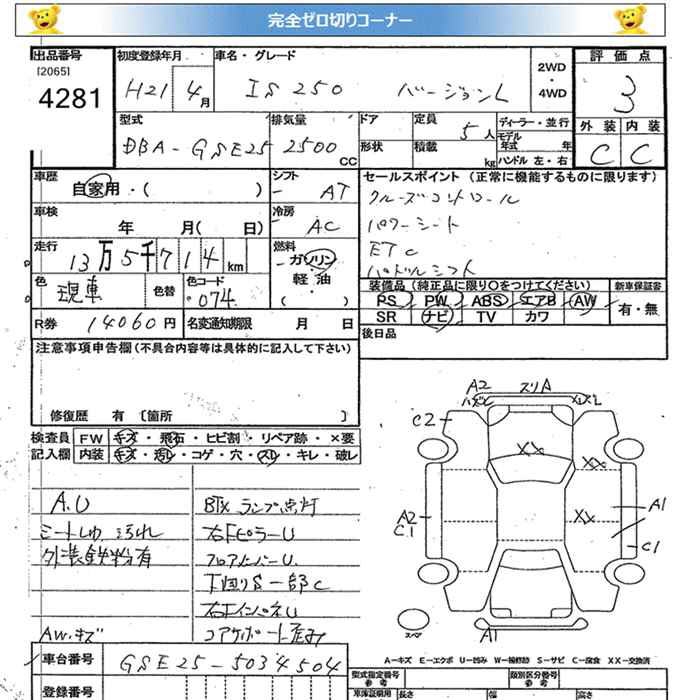 完全ゼロ切りコーナー
出品番号
[2065]
4281
初度登録年月
H21 4月
車名・グレード
IS250 バージョンL
2WD
・
4WD
評価点
3
型式
DBA-GSE25
排気量
2500 CC
ドア
形状
定員
5人
積載
kg
ディーラー・並行
モデル
年式 年
ハンドル 左・右
外装 内装
C C
車歴
自家用・( )
シフト
- AT
セールスポイント (正常に機能するものに限ります)
クルーズコントロール
パワーシート
ETC
パドルシフト
車検
年 月( 日)
冷房
AC
走行
13万5千714km
燃料
ガソリン
・
軽油
( )
色
現車
色替
色コード
074
装備品(純正品に限り○をつけてください)
PS PW ABS エアB AW
SR ナビ TV カワ
新車保証書
有・無
R券 14060円
名変通知期限 月 日
後日品
注意事項申告欄(不具合内容等は具体的に記入して下さい)
修復歴 有 〔箇所 〕
検査員
記入欄
FW キズ・飛石・ヒビ割・リペア跡・×要
内装 キズ・汚レ・コゲ・穴・スレ・キレ・破レ
A.U
シートしゅ 汚れ
外装鉄粉有
AW.キズ
ランプ点灯
右Fピラー U
フロアメンバー U.
下回りS一部C
右インパネ U
コアサポート歪み
A2
スリA
C2
XX
XX
XX
A2
C1
A1
C1
A1
スペア
A-キズ E-エクボ U-凹み W-補修跡 S-サビ C-腐食 XX-交換済
車台番号 GSE25-5034504
登録番号
型式指定番号
参考
類別区分番号
参考
車体証明用
長さ
幅
高さ